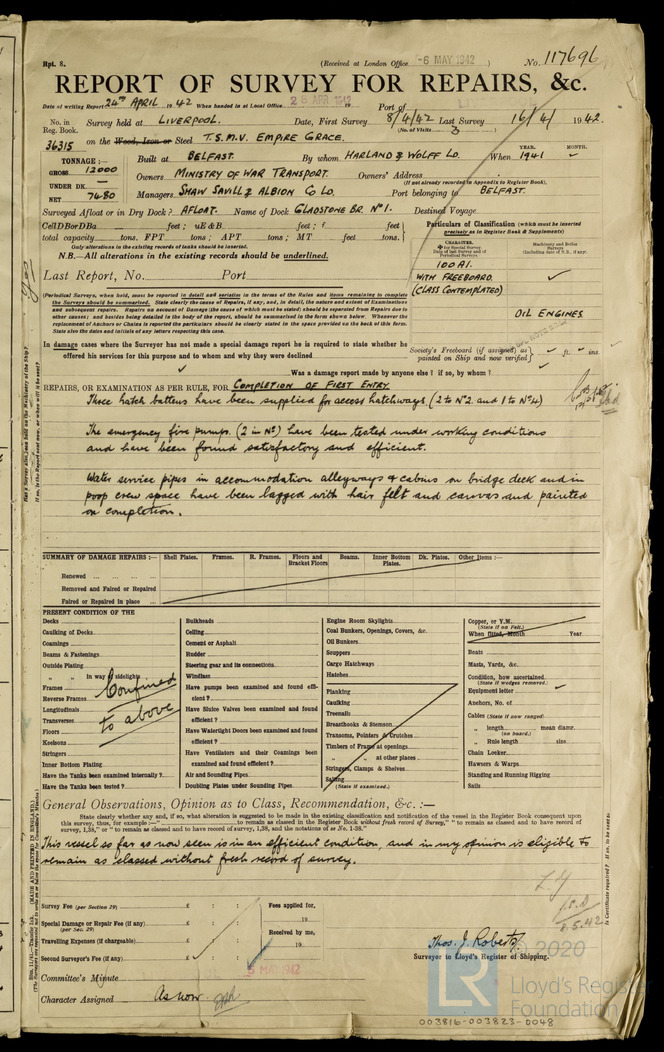 Rpt. 8.
(Received at London Office -6 MAY 1942
No. 117696
REPORT OF SURVEY FOR REPAIRS, &c.
Date of writing Report 24th APRIL 1942 When handed in at Local Office 19 Port of
No. in Reg. Book. Survey held at LIVERPOOL. Date, First Survey 8/4/42 Last Survey 16/4/ 1942.
(No. of Visits 3 )
36315 on the Wood, Iron or Steel T.S.M.V. EMPIRE GRACE.
TONNAGE:—
GROSS 12000
UNDER DK. —
NET 7480
Built at BELFAST. By whom HARLAND & WOLFF LD. When YEAR. 1941 MONTH.
Owners MINISTRY OF WAR TRANSPORT. Owners' Address
(If not already recorded in Appendix to Register Book)
Managers SHAW SAVILL & ALBION CO LD. Port belonging to BELFAST.
Surveyed Afloat or in Dry Dock? AFLOAT. Name of Dock GLADSTONE BR. No 1. Destined Voyage
CellDBorDBa feet; uE&B feet; f feet
total capacity tons. FPT tons; APT tons; MT feet tons.
Only alterations in the existing records of tanks should be inserted.
N.B.—All alterations in the existing records should be underlined.
Particulars of Classification (which must be inserted
precisely as in Register Book & Supplements)
100 A1.
WITH FREEBOARD.
(CLASS CONTEMPLATED)
OIL ENGINES
Last Report, No. Port
(Periodical Surveys, when held, must be reported in detail and seriatim in the terms of the Rules and items remaining to complete
the Surveys should be summarised. State clearly the cause of Repairs, if any, and, in detail, the nature and extent of Examinations
and subsequent repairs. Repairs on account of Damage (the cause of which must be stated) should be separated from Repairs due to
other causes; and besides being detailed in the body of the report, should be summarised in the form shown below. Whenever the
replacement of Anchors or Chains is reported the particulars should be clearly stated in the space provided on the back of this form.
State also the dates and initials of any letters respecting this case.)
In damage cases where the Surveyor has not made a special damage report he is required to state whether he
offered his services for this purpose and to whom and why they were declined
Society's Freeboard (if assigned) as
painted on Ship and now verified ft. ins.
Was a damage report made by anyone else? if so, by whom?
REPAIRS, OR EXAMINATION AS PER RULE, FOR COMPLETION OF FIRST ENTRY.
Three hatch battens have been supplied for access hatchways. (2 to No 2 and 1 to No 4)
The emergency fire pumps. (2 in No) have been tested under working conditions
and have been found satisfactory and efficient.
Water service pipes in accommodation alleyways & cabins on bridge deck and in
poop crew space have been lagged with hair felt and canvas and painted
on completion.
SUMMARY OF DAMAGE REPAIRS:— Shell Plates. Frames. R. Frames. Floors and Bracket Floors Beams. Inner Bottom Plates. Dk. Plates. Other Items:—
Renewed
Removed and Faired or Repaired
Faired or Repaired in place
PRESENT CONDITION OF THE
Decks
Caulking of Decks
Coamings
Beams & Fastenings
Outside Plating
" " in way of sidelights
Frames
Reverse Frames
Longitudinals
Transverses
Floors
Keelsons
Stringers
Inner Bottom Plating
Have the Tanks been examined internally?
Have the Tanks been tested?
Confined
to above
Bulkheads
Ceiling
Cement or Asphalt
Rudder
Steering gear and its connections.
Windlass
Have pumps been examined and found efficient?
Have Sluice Valves been examined and found efficient?
Have Watertight Doors been examined and found efficient?
Have Ventilators and their Coamings been examined and found efficient?
Air and Sounding Pipes
Doubling Plates under Sounding Pipes
Engine Room Skylights
Coal Bunkers, Openings, Covers, &c.
Oil Bunkers
Scuppers
Cargo Hatchways
Hatches
Planking
Caulking
Treenails
Breasthooks & Stemson
Transoms, Pointers & Crutches
Timbers of Frame at openings
" " at other places
Stringers, Clamps & Shelves
Salting
(State if examined.)
Copper, or Y.M.
(State if on Felt.)
When fitted, Month Year
Boats
Masts, Yards, &c.
Condition, how ascertained
(State if wedges removed.)
Equipment letter
Anchors, No. of
Cables (State if now ranged)
" length mean diamr.
(on board.)
" Rule length size
Chain Locker
Hawsers & Warps
Standing and Running Rigging
Sails
General Observations, Opinion as to Class, Recommendation, &c. :—
State clearly whether any, and if so, what alteration is suggested to be made in the existing classification and notation of the vessel in the Register Book consequent upon
this survey, thus, for example:—" to remain as classed in the Register Book without fresh record of Survey," " to remain as classed and to have record of
survey, 1,38," or " to remain as classed and to have record of survey, 1,38, and the notations of ss No. 1-38."
This vessel so far as now seen is in an efficient condition, and in my opinion is eligible to
remain as classed without fresh record of survey.
Survey Fee (per Section 29) £ : : Fees applied for,
19
Special Damage or Repair Fee (if any) £ : :
(per Sec. 29)
Received by me,
Travelling Expenses (if chargeable) £ : :
19
Second Surveyor's Fee (if any) £ : :
Thos. J. Roberts.
Surveyor to Lloyd's Register of Shipping.
Committee's Minute 5 MAY 1942
Character Assigned As now.
8.5.42
© 2020
LR
Lloyd's Register
Foundation
003816-003823-0048